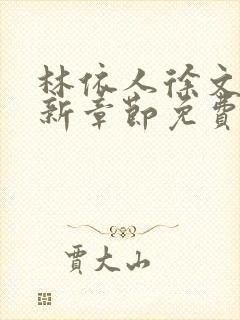 林依人徐文
新章節免費
賈大山